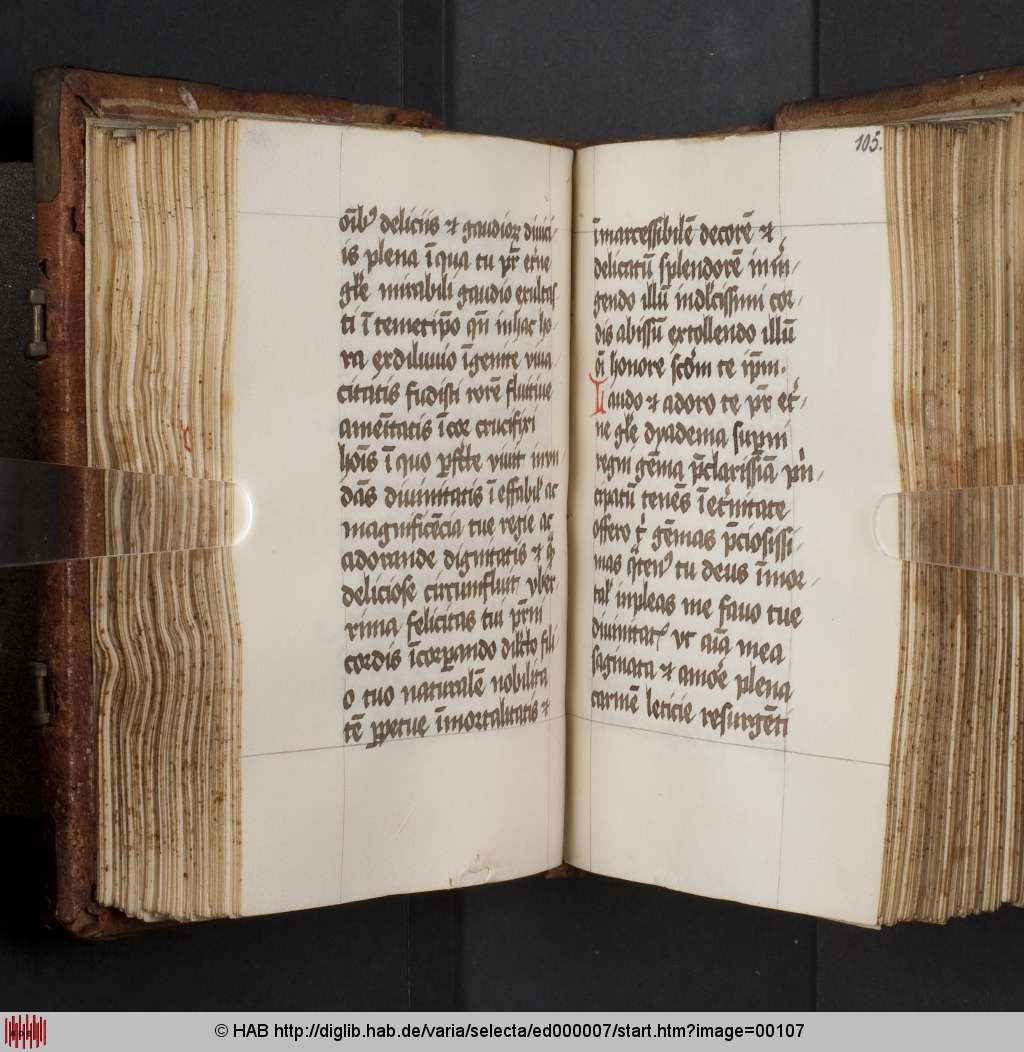 om̅ib⁹ deliciis ⁊ gaudioꝝ diuici⸗
is plena i̅ qua tu pr̅ et̅ne
gl̅e mirabili gaudio exultas
ti i̅ temetip̅o qn̅ in hac ho⸗
ra ex diluuio i̅gente viua⸗
citatis fudisti rore̅ fluitiue
ame̅itatis i̅ cor crucifixi
ho̅is i̅ quo p̅fc̅te viuit inun
da̅s diuinitatis i̅effabil̅ ac
magnifice̅cia tue regie ac
adorande dignitatis ⁊ q̅
deliciose circu̅fluit vber⸗
rima felicitas tui pr̅ni
cordis i̅corꝑando dil̅cto fili
o tuo naturale̅ nobilita
te̅ ꝑpetue i̅mortalitatis ⁊
105.
i̅marcessibile̅ decore̅ ⁊
delicatu̅ splendore̅ in iu̅⸗
gendo illu̅ in dul̅cissimi cor⸗
dis abissu̅ extollendo illu̅
i̅ honore sc̅dm te ip̅m.
Laudo ⁊ adoro te pr̅ et̅⸗
ne gl̅e dyadema sup̅ni
regni ge̅ma p̅clarissi̅a pri̅⸗
cipatu̅ tene̅s i̅ et̅nitate
offero t̅ ge̅mas p̅ciosissi⸗
mas q̅ten⁹ tu deus i̅mor⸗
tal̅ inpleas me fauo tue
diuinitat̅ vt ai̅a mea
saginata ⁊ amo̅e plena
carme̅ leticie resurge̅ti
© HAB http://diglib.hab.de/varia/selecta/ed000007/start.htm?image=00107